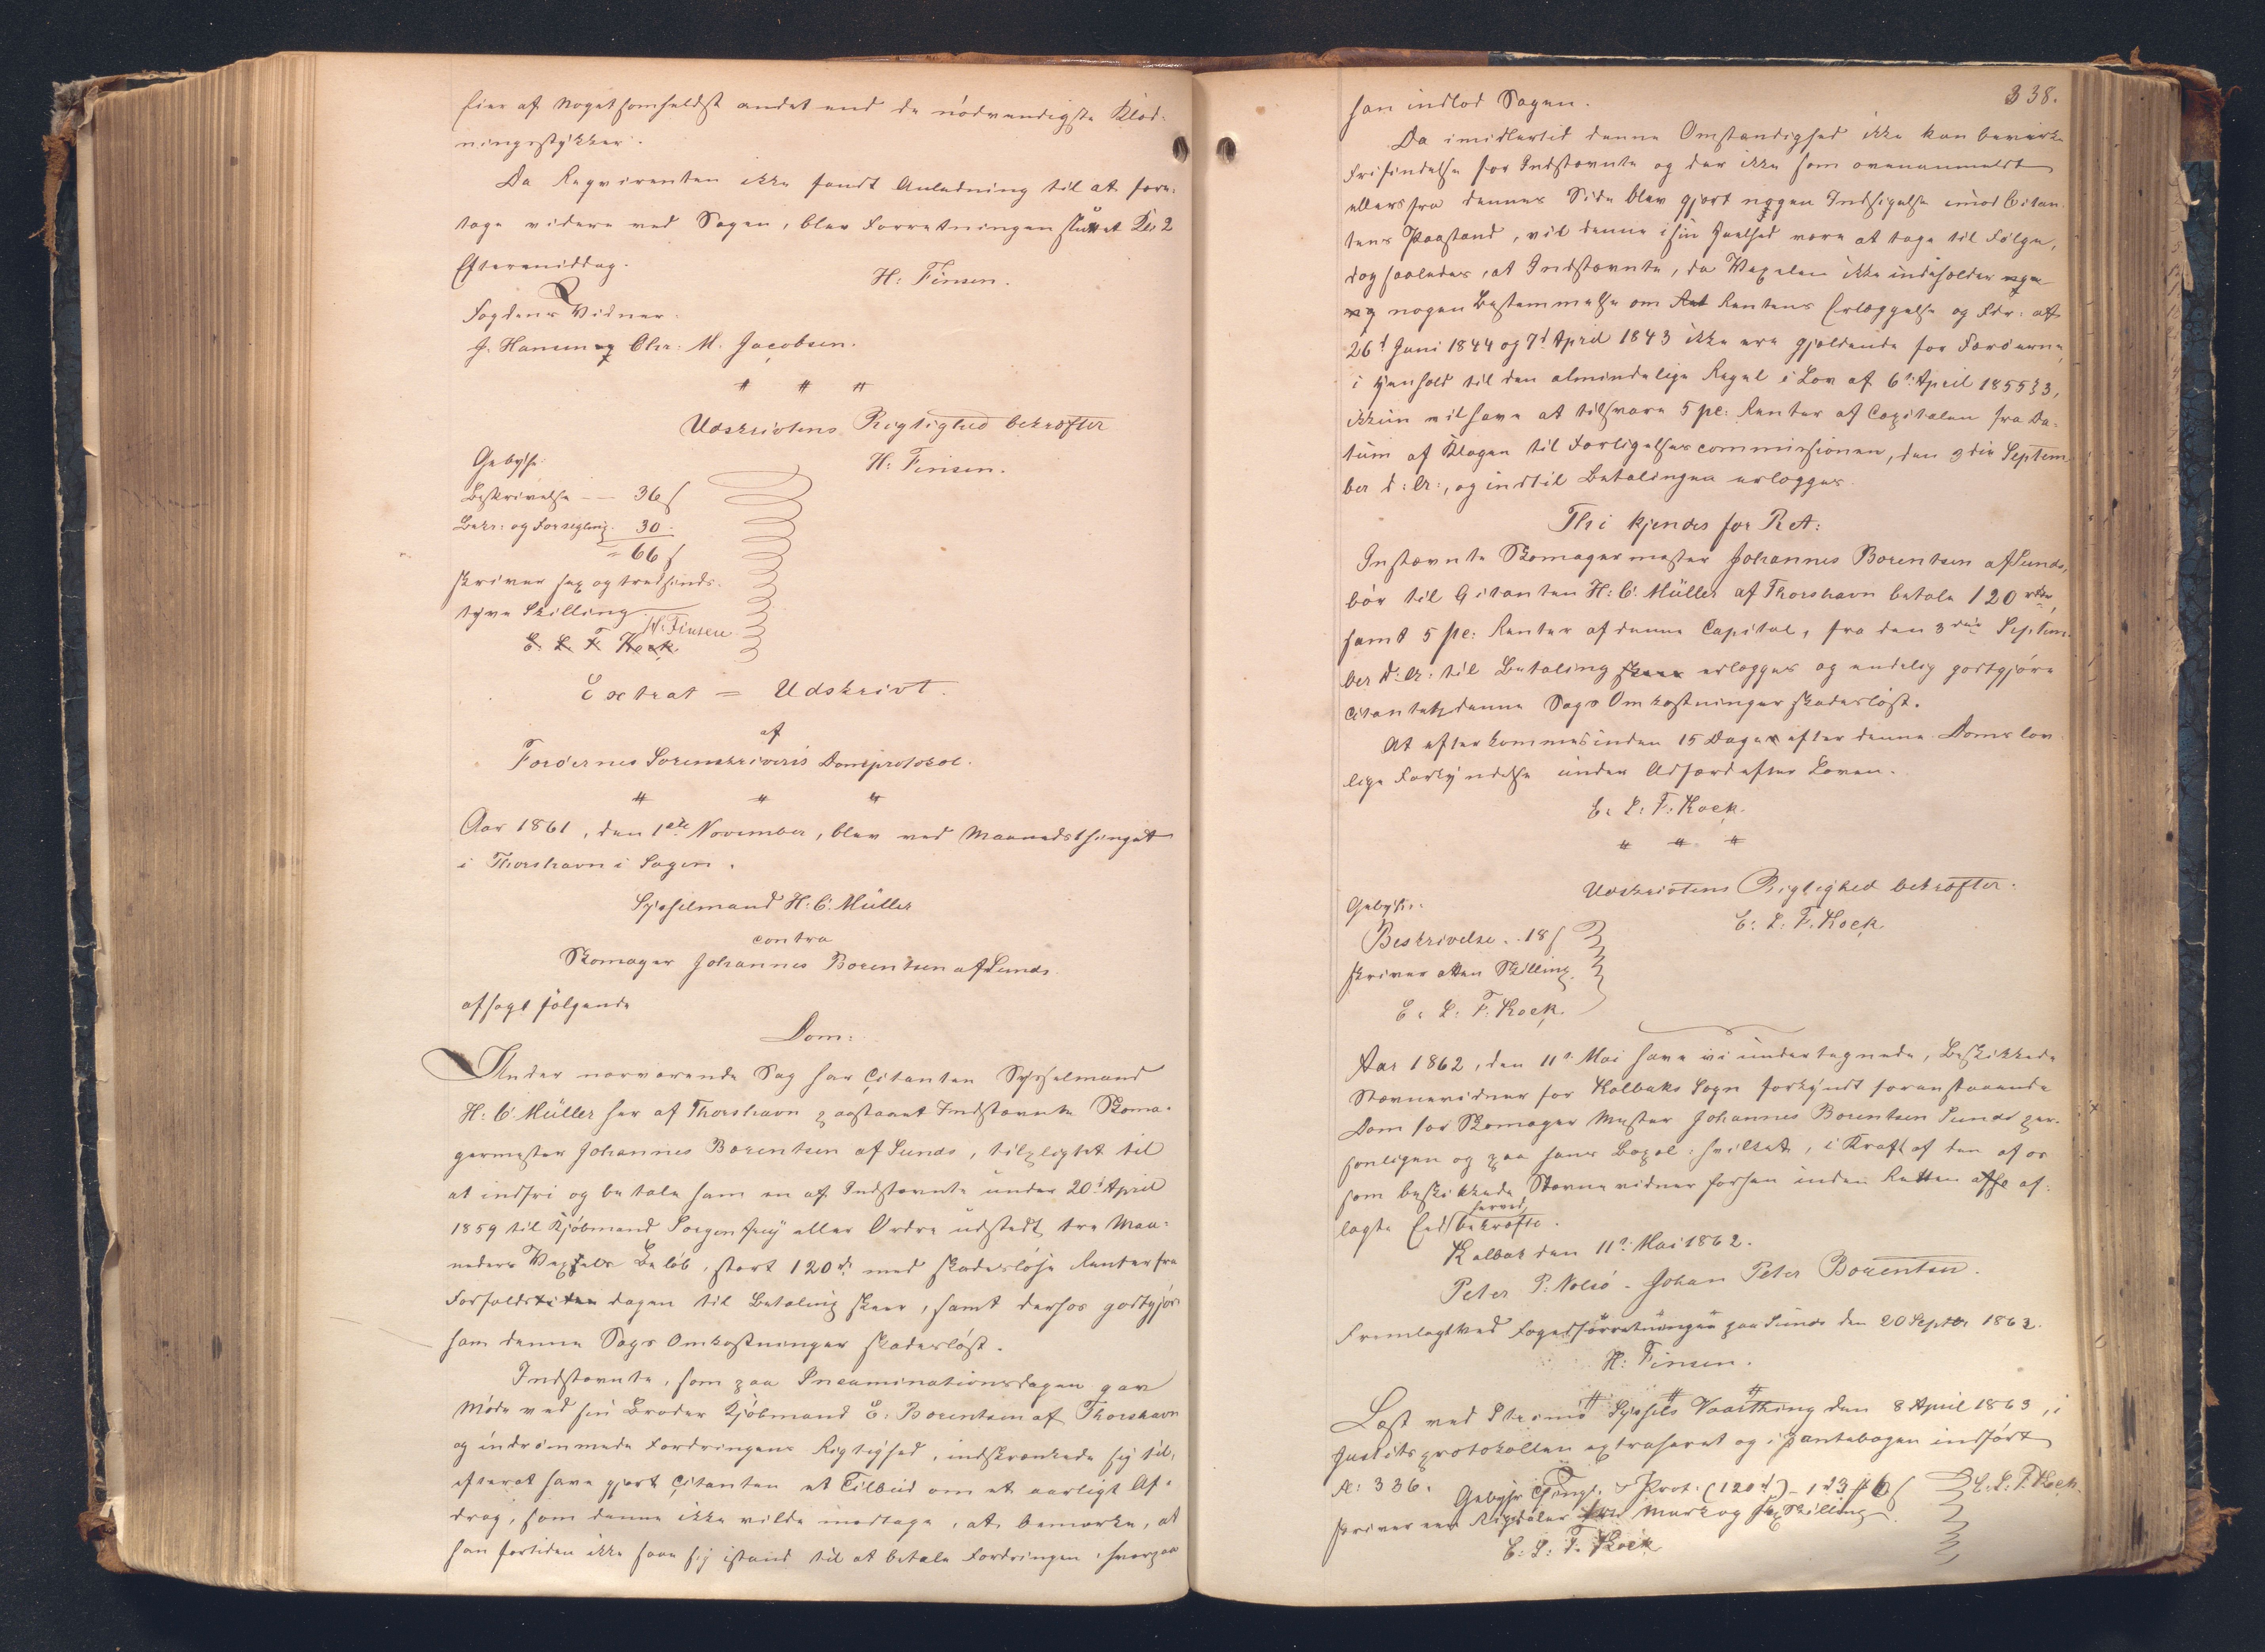 Eier af Nogetsomhelst andet end de nödvendigste Klæd-
ningsstykker.
Da Reqvirenten ikke fandt Anledning til at fore-
tage videre ved Sagen, blev Forretningen sluttet Kl. 2
Eftermiddag.
H: Finsen.
Fogdens Vidner:
J. Hansen og Chr: M. Jacobsen.
Udskrivtens Rigtighed bekræfter
H: Finsen.
Gebyhr
Beskrivelse — 36 ſ
Bekr: og Forsegling. 30.
= 66 ſ
skriver sex og tredsinds-
tyve Skilling
H: Finsen
E. L. F. Kock
Extrat = Udskrivt.
af
Færöernes Sorenskriveris Domsprotokol.
Aar 1861, den 1ste November, blev ved Maanedsthinget
i Thorshavn i Sagen.
Sysselmand H: C: Müller
contra
Skomager Johannes Borentsen af Sund.
afsagt fölgende
Dom:
Under nærværende Sag har Citanten Sysselmand
H: C: Müller her af Thorshavn paastaaet Indstævnte Skoma-
germester Johannes Borentsen af Sund, tilpligtet til
at indfri og betale ham en af Indstævnte under 20d April
1859 til Kjöbmand Sorgenfrey eller Ordre udstedt tre Maa-
neders Vexels Belöb, stort 120rd med skadeslöse Renter fra
Forfaldstiden dagen til Betaling skeer, samt derhos godtgjöre
ham denne Sags Omkostninger skadeslöst.
Indstævnte, som paa Incaminationsdagen gav
Möde ved sin Broder Kjöbmand E: Borentsen af Thorshavn
og indrömmede Fordringens Rigtighed, indskrænkede sig til,
efterat have gjort Citanten et Tilbud om et aarligt Af-
drag, som denne ikke vilde modtage, at bemærke, at
han fortiden ikke saae sig istand til at betale Fordringen, hvorpaa
338.
han indlod Sagen.
Da imidlertid denne Omstændighed ikke kan bevirke
Frifindelse for Indstævnte og der ikke som ovenanmeldt
ellers fra dennes Side blev gjort nogen Indsigelse imod Citan-
tens Paastand, vil denne i sin Heelhed være at tage til Fölge,
dog saaledes, at Indstævnte, da Vexelen ikke indeholder
nogen Bestemmelse om Rentens Erlæggelse og Fdr. af
26d Juni 1844 og 7d April 1843 ikke ere gjældende for Færöerne,
i Henhold til den almindelige Regel i Lov af 6te April 1855 § 3,
ikkun vil have at tilsvare 5 pC: Renter af Capitalen fra Da-
tum af Klagen til Forligelsescommissionen, den 3die Septem-
ber d: A:, og indtil Betalingen erlægges.
Thi kjendes for Ret:
Instævnte Skomagermester Johannes Borentsen af Sund,
bör til Citanten H: C: Müller af Thorshavn betale 120 rdlr,
samt 5 pC: Renter af denne Capital, fra den 3die Septem-
ber d: A: til Betaling skeer erlægges og endelig godtgjöre
Citanten denne Sags Omkostninger skadeslöst.
At efterkommes inden 15 Dage efter denne Doms lov-
lige Forkyndelse under Adfærd efter Loven.
E: L: F: Kock.
Udskrivtens Rigtighed bekræfter.
E: L: F. Kock
Gebyhr:
Beskrivelse .. 18 ſ
skriver atten Skilling
E: L: F. Kock
Aar 1862, den 11te Mai have vi undertegnede, Beskikkede
Stævnevidner for Kolbaks Sogn forkyndt foranstaaende
Dom for Skomager Mester Johannes Borentsen Sund per-
sonligen og paa hans Bopæl: hvilket, i Kraft af den af os
som beskikkede Stævnevidner forhen inden Retten af-
lagte Eed herved bekræfte.
Kalbak den 11te Mai 1862.
Peter P. Nolsö - Johan Peter Borentsen.
Fremlagt ved Fogedforretningen paa Sund den 20 Septbr 1862.
H: Finsen.
Læst ved Strömö Syssels Vaarthing den 8 April 1863, i
Justitsprotokollen extraheret og i Pantebogen indfört
A: 336.
Gebyhr Thingl. & Prot. (120 rd) - 1 rd 3 # 6 ſ
E: L: F. Kock.
skriver een Rigsdaler tre Mark og sex Skilling
E: L: F. Kock